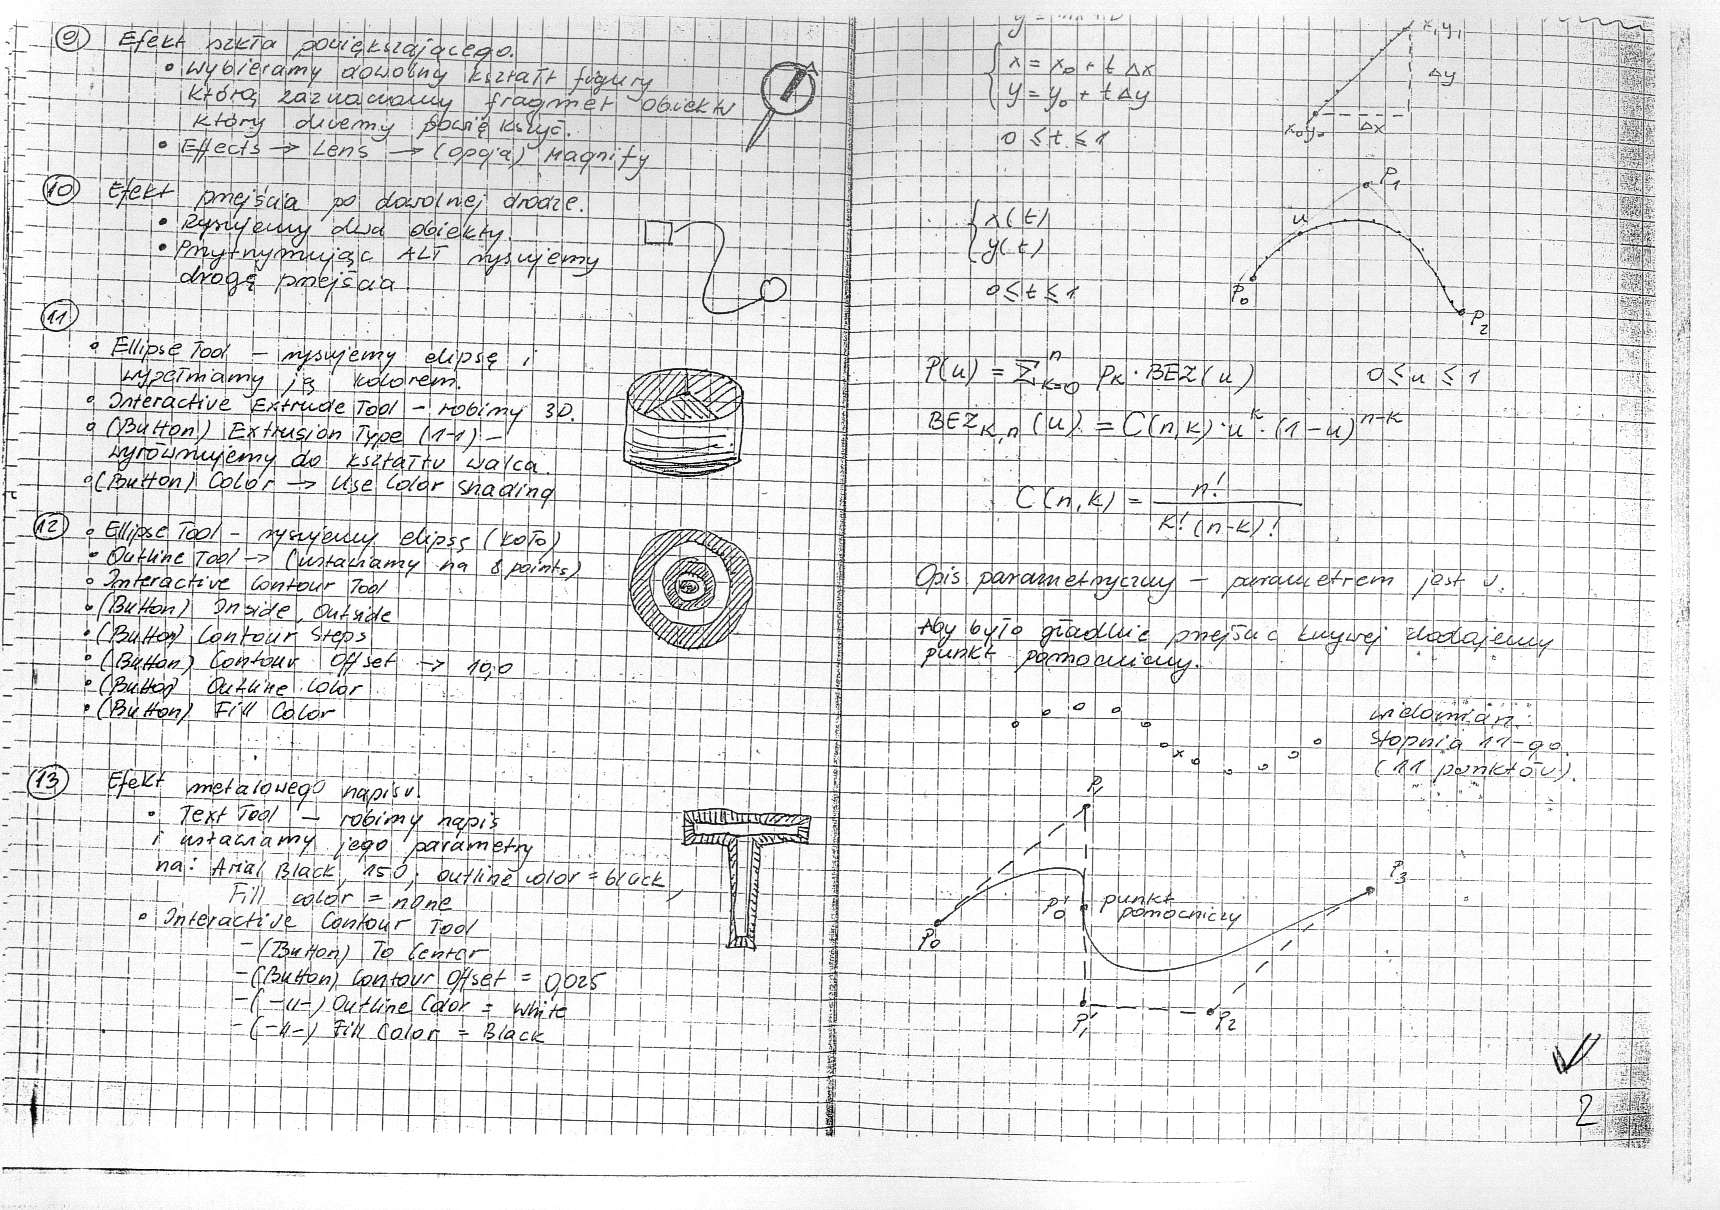 9 Efekt szkła powiększającego.
• wybieramy dowolny kształt figury
którą zaznaczamy fragmet obiektu
który chcemy powiększyć.
• Effects → Lens → (opcja) Magnify
10 Efekt przejścia po dowolnej drodze.
• Rysujemy dwa obiekty.
• Przytrzymując ALT rysujemy
drogę przejścia.
11
• Ellipse Tool – rysujemy elipsę i
wypełniamy ją kolorem.
• Interactive Extrude Tool – robimy 3D.
• (Button) Extrusion Type (1-1) –
wyrównujemy do kształtu walca.
• (Button) Color → Use Color Shading
12 • Ellipse Tool – rysujemy elipsę (koło)
• Outline Tool → (ustawiamy na 8 points)
• Interactive Contour Tool
• (Button) Inside, Outside
• (Button) Contour Steps
• (Button) Contour Offset → 10,0
• (Button) Outline Color
• (Button) Fill Color
13 Efekt metalowego napisu.
• Text Tool – robimy napis
i ustawiamy jego parametry
na: Arial Black, 150; outline color = black,
Fill color = none
• Interactive Contour Tool
– (Button) To Center
– (Button) Contour Offset = 0,025
– (–||–) Outline Color = White
– (–||–) Fill Color = Black
x = x₀ + t Δx
y = y₀ + t Δy
0 ≤ t ≤ 1
x₁y₁
Δy
x₀y₀ Δx
x(t)
y(t)
0 ≤ t ≤ 1
P₁
u
P₀
P₂
P(u) = Σⁿₖ₌₀ Pₖ · BEZ(u) 0 ≤ u ≤ 1
BEZ_{k,n}(u) = C(n,k) · u^k · (1-u)^{n-k}
C(n,k) = n! / k!(n-k)!
Opis parametryczny – parametrem jest u.
Aby było gładkie przejście krzywej dodajemy
punkt pomocniczy.
wielomian
stopnia 11-go.
(11 punktów).
P₁
P₃
P₀' punkt
pomocniczy
P₀
P₁' P₂
2